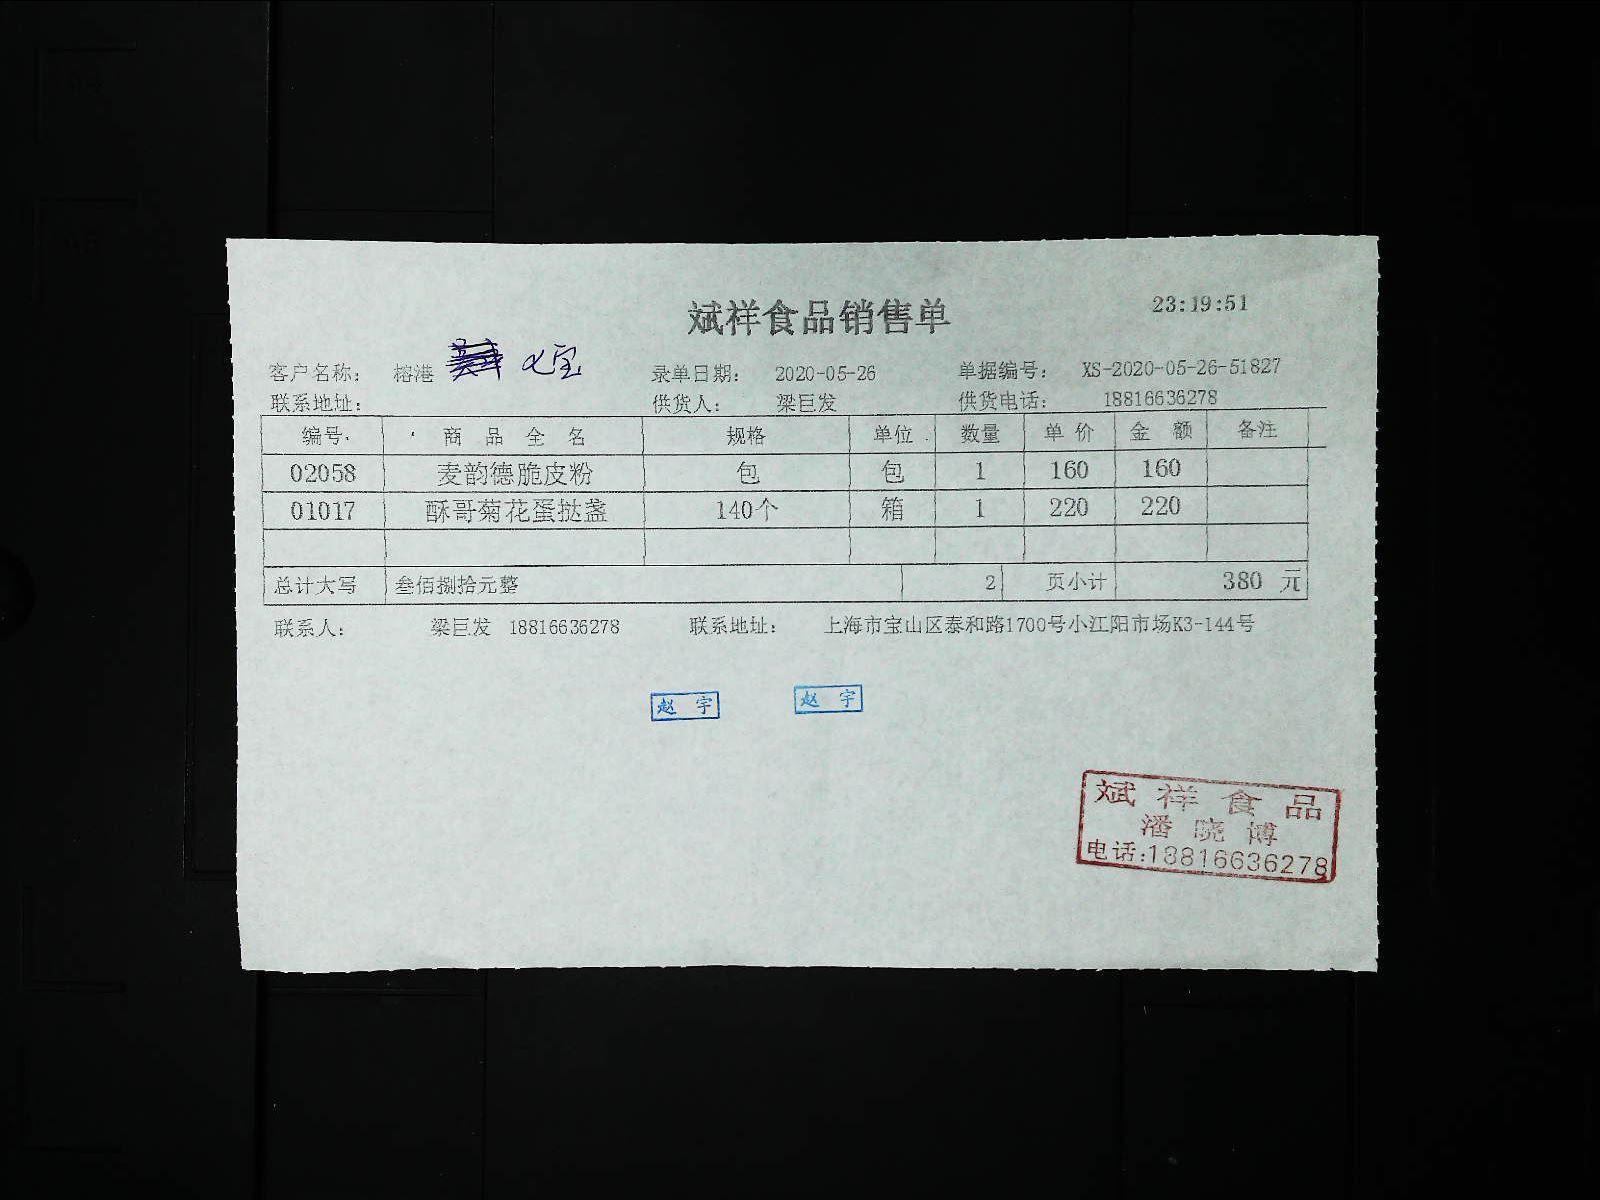 斌祥食品销售单 23:19:51
客户名称： 榕港 七宝 录单日期： 2020-05-26 单据编号： XS-2020-05-26-51827
联系地址： 供货人： 梁巨发 供货电话： 18816636278
编号 商品全名 规格 单位 数量 单价 金额 备注
02058 麦韵德脆皮粉 包 包 1 160 160
01017 酥哥菊花蛋挞盏 140个 箱 1 220 220
总计大写 叁佰捌拾元整 2 页小计 380 元
联系人： 梁巨发 18816636278 联系地址： 上海市宝山区泰和路1700号小江阳市场K3-144号
赵 宇 赵 宇
斌祥食品
潘晓博
电话:18816636278